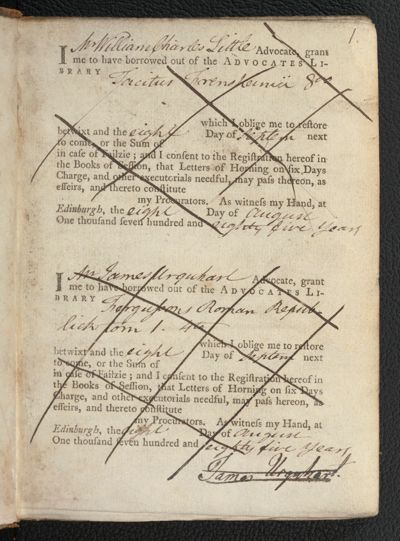 1.
I Mr William Charles Little Advocate, grant
me to have borrowed out of the ADVOCATES LI-
BRARY
Tacitus 8vo
which I oblige me to reſtore
betwixt and the eight Day of Septem next
to come, or the Sum of
in caſe of Failzie; and I conſent to the Regiſtration hereof in
the Books of Seſſion, that Letters of Horning on ſix Days
Charge, and other executorials needful, may paſs thereon, as
effeirs, and thereto conſtitute
my Procurators. As witneſs my Hand, at
Edinburgh, the eight Day of August
One thouſand ſeven hundred and eighty five Years
I Mr James Urquhart Advocate, grant
me to have borrowed out of the ADVOCATES LI-
BRARY
Fergusons Roman Repub
lick tom 1. 4to
which I oblige me to reſtore
betwixt and the eight Day of Septem next
to come, or the Sum of
in caſe of Failzie; and I conſent to the Regiſtration hereof in
the Books of Seſſion, that Letters of Horning on ſix Days
Charge, and other executorials needful, may paſs hereon, as
effeirs, and thereto conſtitute
my Procurators. As witneſs my Hand, at
Edinburgh, the eight Day of August
One thouſand ſeven hundred and eighty five Years
James Urquhart.